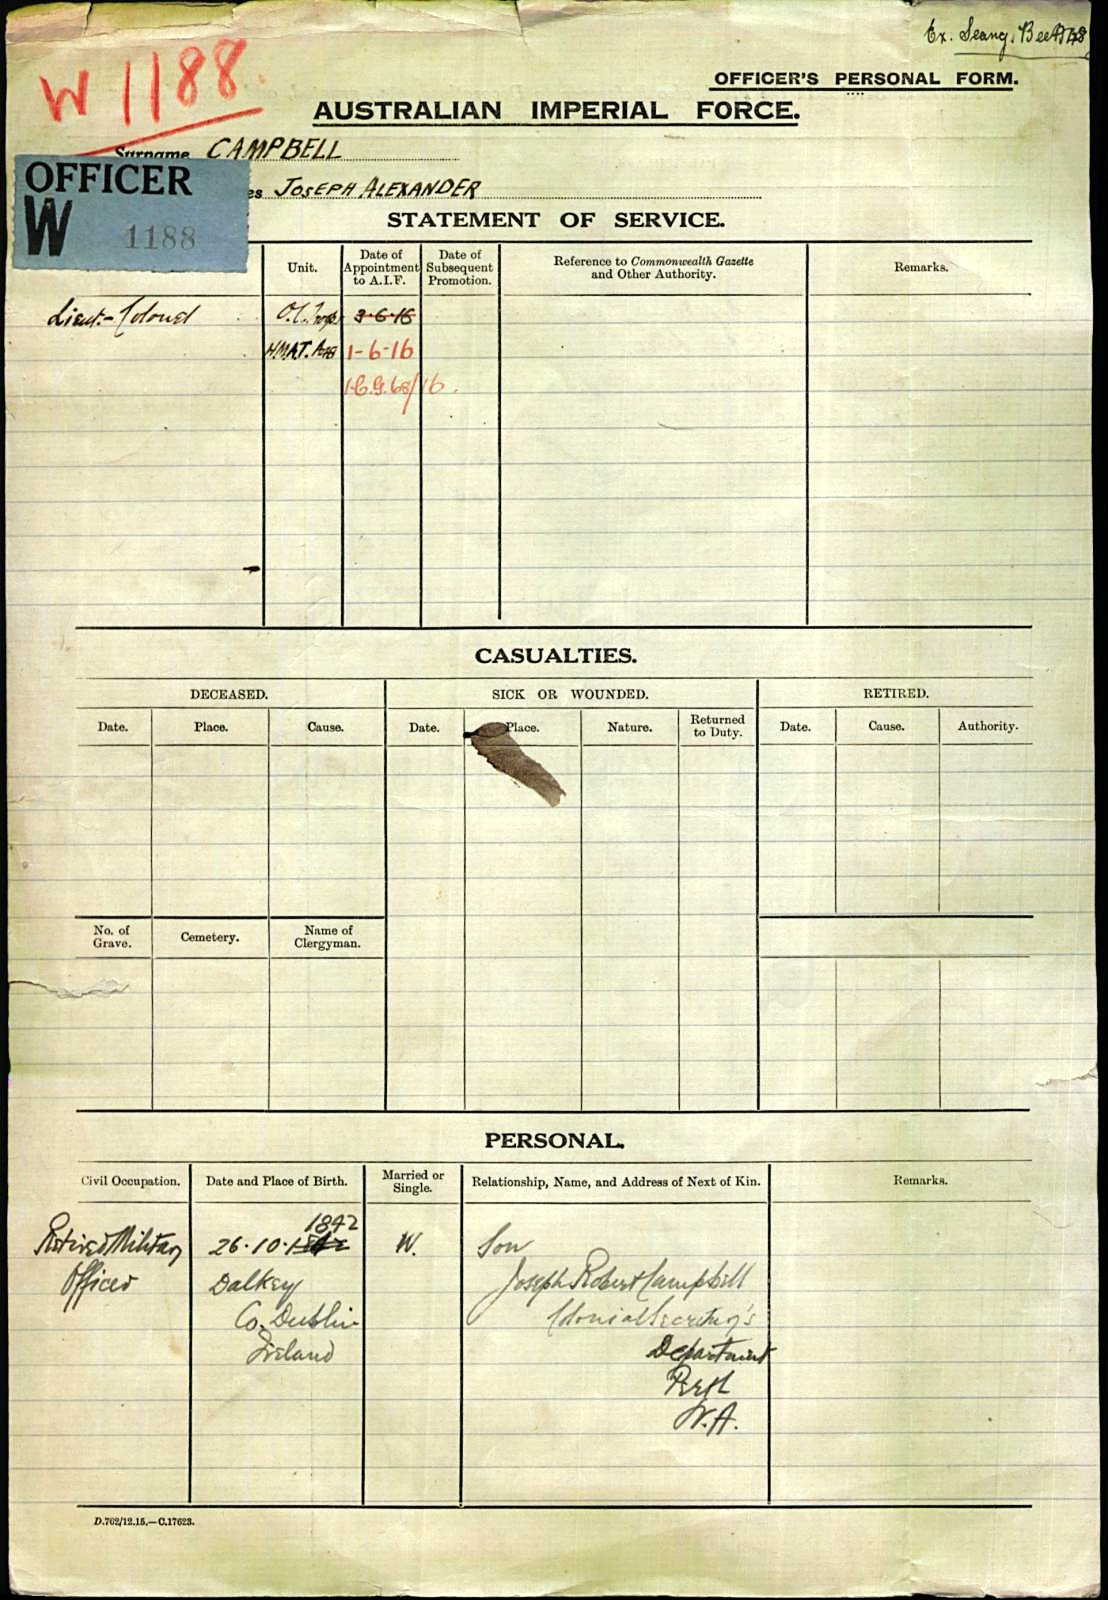 Ex. Seang. Bee A48
W 1188
OFFICER'S PERSONAL FORM.
AUSTRALIAN IMPERIAL FORCE.
Surname CAMPBELL
OFFICER
W 1188
es JOSEPH ALEXANDER
STATEMENT OF SERVICE.
Unit.
Date of Appointment to A.I.F.
Date of Subsequent Promotion.
Reference to Commonwealth Gazette and Other Authority.
Remarks.
Lieut.-Colonel O.C. Troops 3-6-16
HMAT. A48 1-6-16
68/16.
CASUALTIES.
DECEASED. SICK OR WOUNDED. RETIRED.
Date. Place. Cause. Date. Place. Nature. Returned to Duty. Date. Cause. Authority.
No. of Grave. Cemetery. Name of Clergyman.
PERSONAL.
Civil Occupation. Date and Place of Birth. Married or Single. Relationship, Name, and Address of Next of Kin. Remarks.
1842
Retired Military 26.10.1842 W. Son
Officer Dalkey Joseph Robert Campbell
Co. Dublin Colonial Secretary's
Ireland Department
Perth
W.A.
D.762/12.15.—C.17623.